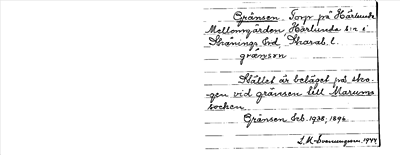 Gränsen. Torp på Härlunda
Mellomgården Härlunda s:n i
Skånings hd, Skarab. l.
gränsen
Stället är beläget på sko-
gen vid gränsen till Marums
socken.
Gränsen Feb. 1938, 1896
S.M. Svenungson. 1944